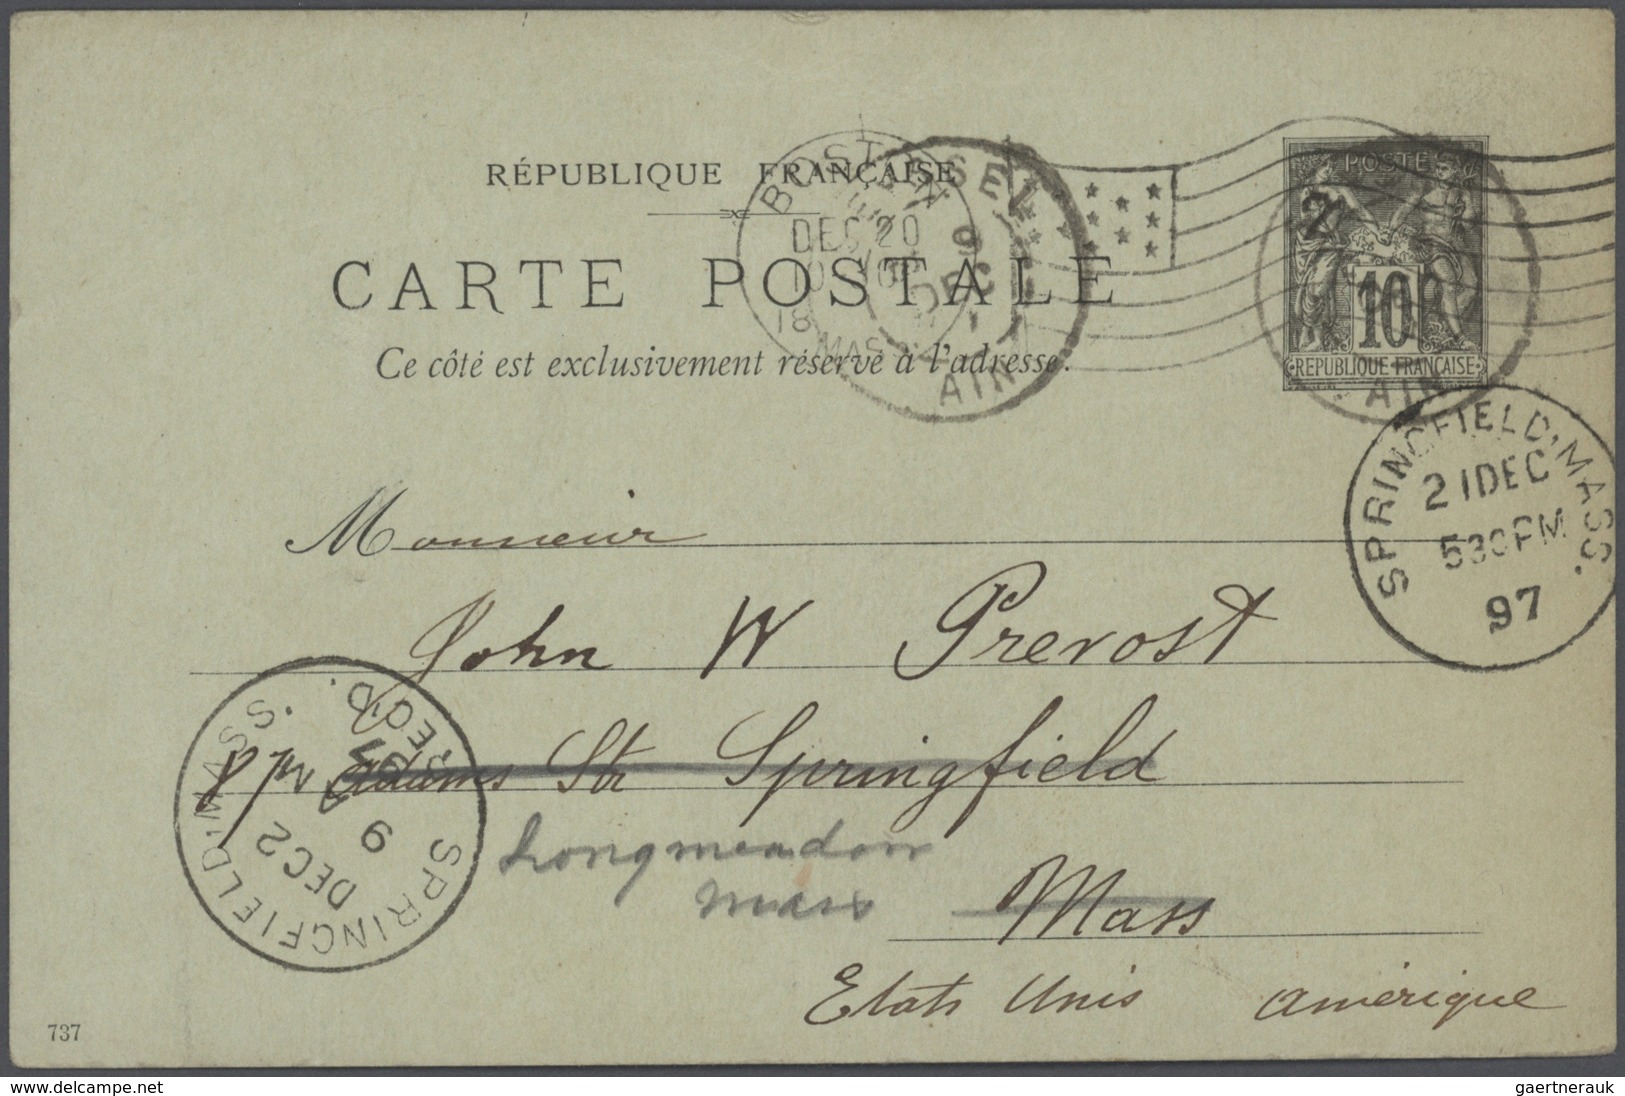 RÉPUBLIQUE FRANÇAISE
CARTE POSTALE
Ce côté est exclusivement réservé à l'adresse.
POSTE
10
REPUBLIQUE FRANÇAISE
BOSTON
DEC 20
18
MASS
9
DEC
AIN
AIN
SPRINGFIELD, MASS.
21 DEC
530 PM
97
Monsieur
John W Prevost
Adams Str Springfield
Longmeadow
Mass
Mass
Etats Unis Amérique
SPRINGFIELD, MASS. REC'D.
DEC 2
9
737
www.delcampe.net
gaertnerauk